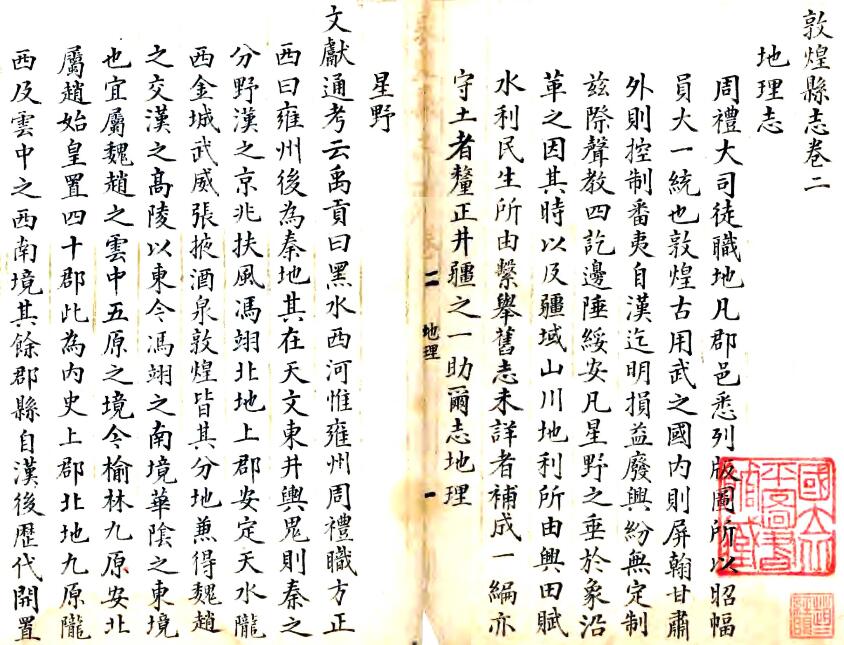 敦煌縣志卷二
地理志
周禮大司徒職地凡郡邑悉列版圖所以昭幅
員大一統也敦煌古用武之國內則屏翰甘肅
外則控制番夷自漢迄明損益廢興紛無定制
茲際聲教四訖邊陲綏安凡星野之垂於象沿
革之因其時以及疆域山川地利所由興田賦
水利民生所由繫舉舊志未詳者補成一編亦
守土者釐正井疆之一助爾志地理
卷二
地理
一
星野
文獻通考云禹貢曰黑水西河惟雍州周禮職方正
西曰雍州後為秦地其在天文東井輿鬼則秦之
分野漢之京兆扶風馮翊北地上郡安定天水隴
西金城武威張掖酒泉敦煌皆其分地兼得魏趙
之交漢之高陵以東今馮翊之南境華陰之東境
也宜屬魏趙之雲中五原之境今榆林九原安北
屬趙始皇置四十郡此為內史上郡北地九原隴
西及雲中之西南境其餘郡縣自漢後歷代開置